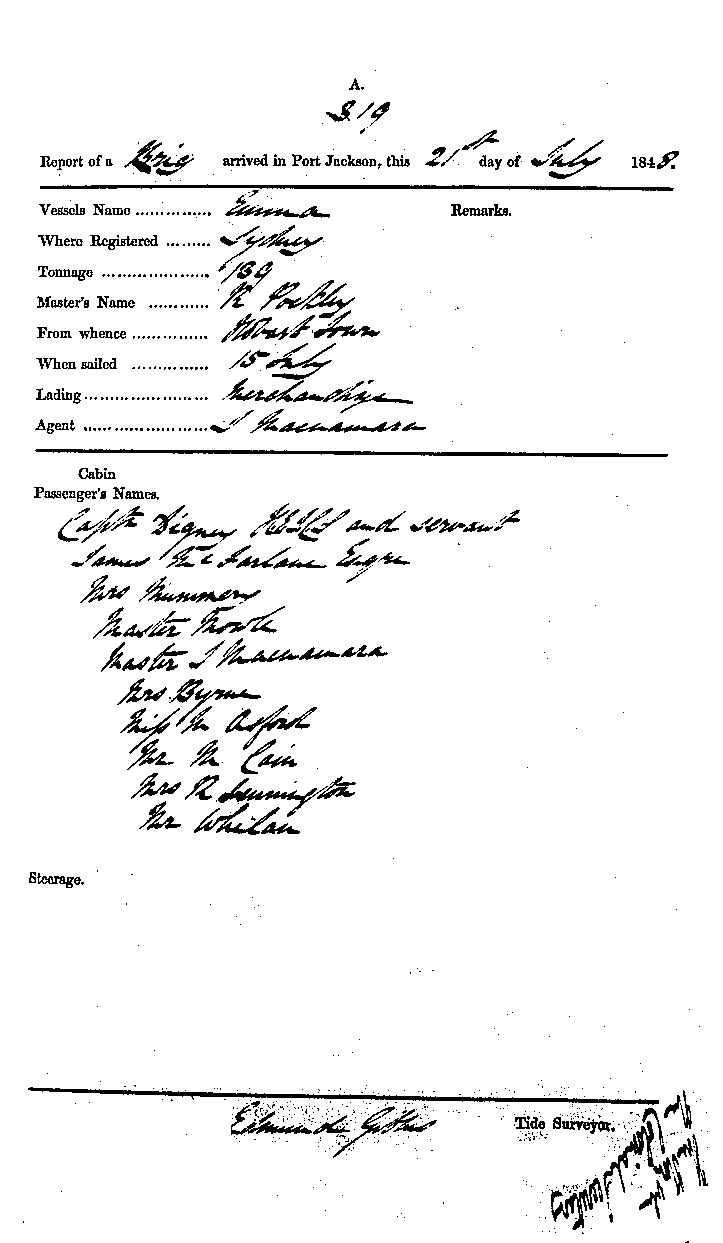 A.
319
Report of a Brig arrived in Port Jackson, this 21st day of July 1848.
Vessels Name .............. Emma
Remarks.
Where Registered ......... Sydney
Tonnage ..................... 139
Master's Name ............ R Pockley
From whence .............. Hobart Town
When sailed .............. 15 July
Lading ....................... Merchandize
Agent ....................... J Macnamara
Cabin
Passenger's Names.
Captn Digney and servant
James McFarlane Esqre
Mrs Nummery
Master
Master J Macnamara
Mrs Byrne
Miss M Asford
Mr M Cain
Mrs R
Mr Whelan
Steerage.
Edmund
Tide Surveyor.